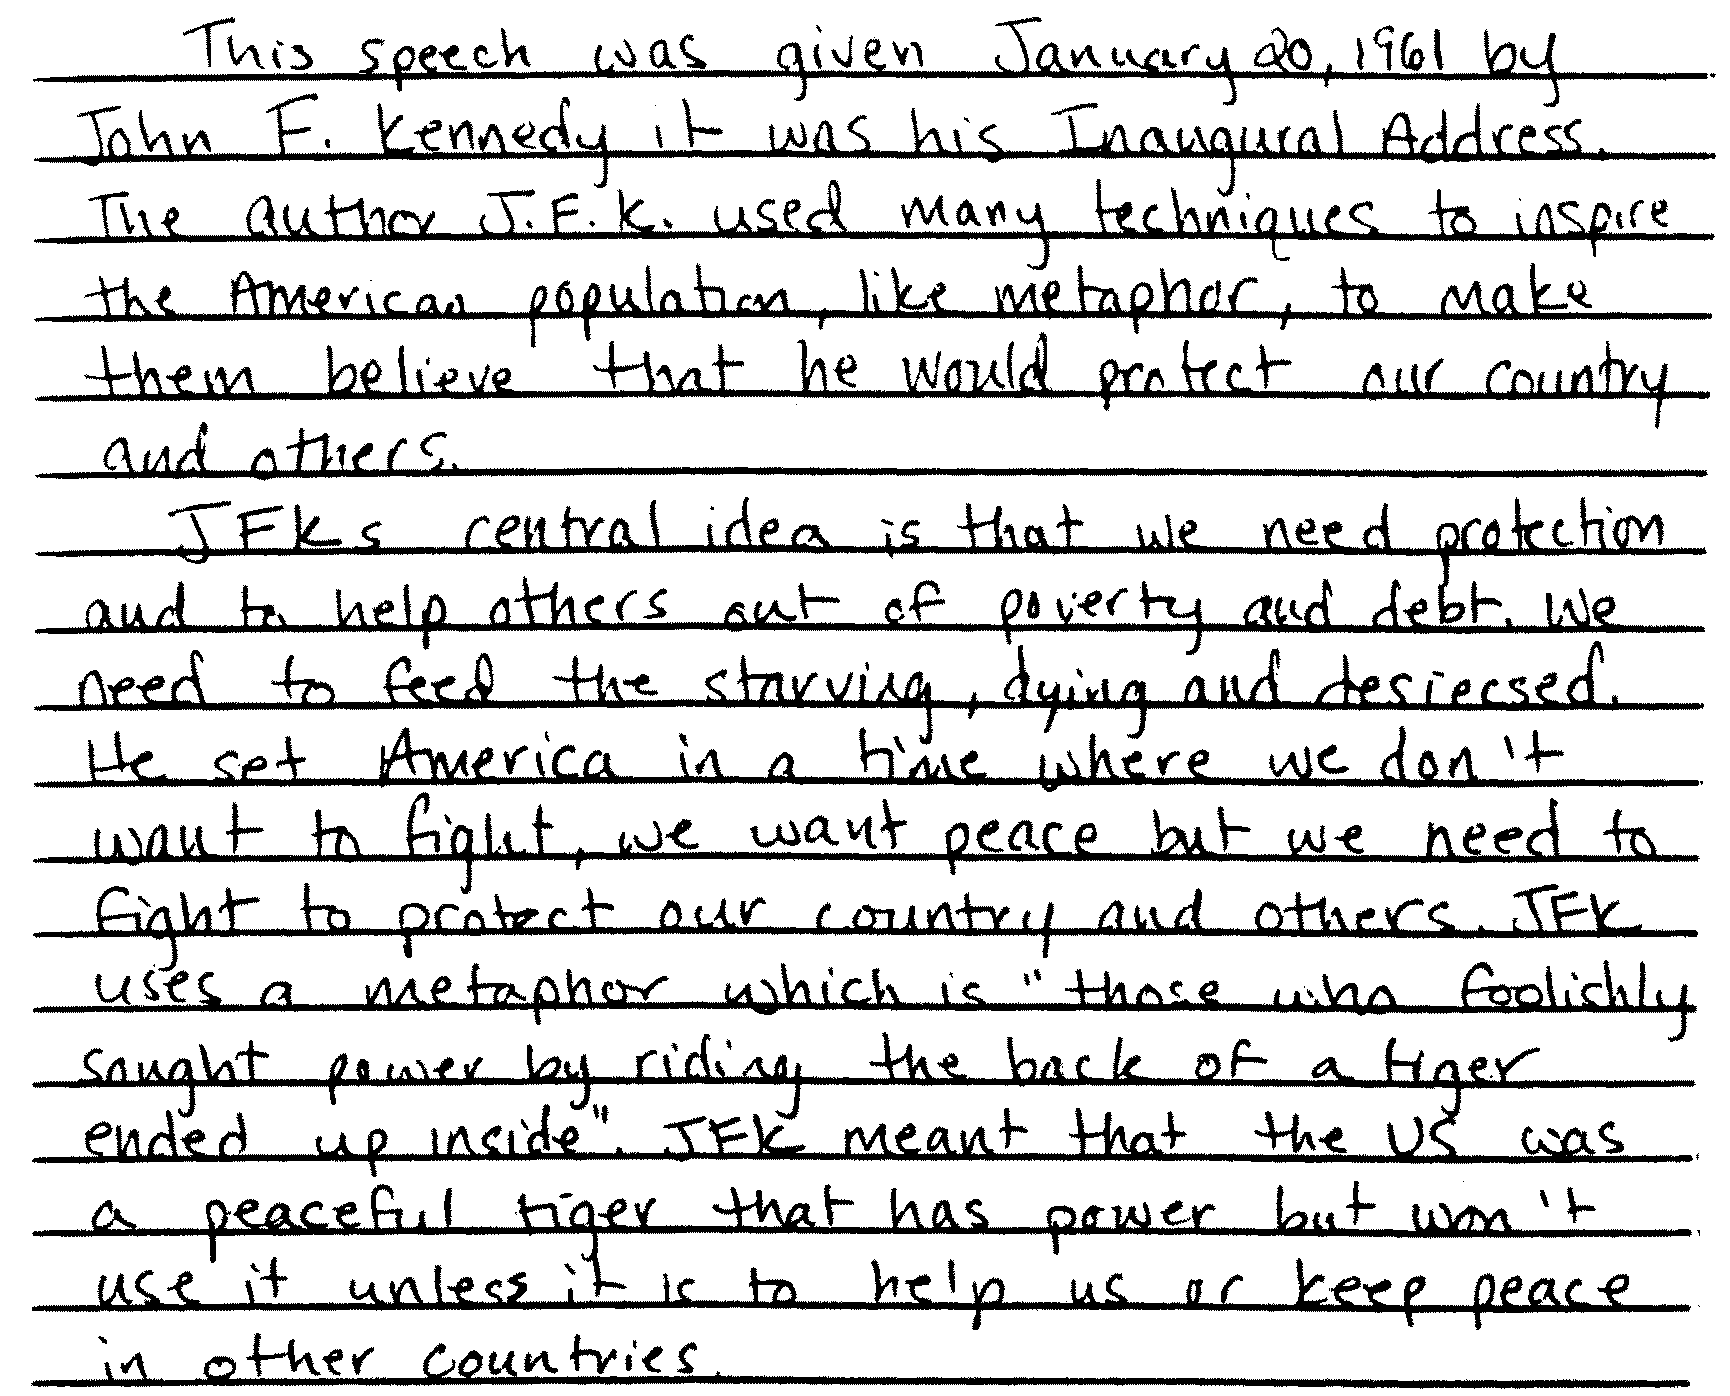 This speech was given January 20, 1961 by
John F. Kennedy it was his Inaugural Address.
The author J.F.K. used many techniques to inspire
the American population, like metaphor, to make
them believe that he would protect our country
and others.
JFKs central idea is that we need protection
and to help others out of poverty and debt. We
need to feed the starving, dying and desiecsed.
He set America in a time where we don't
want to fight, we want peace but we need to
fight to protect our country and others. JFK
uses a metaphor which is "those who foolishly
sought power by riding the back of a tiger
ended up inside". JFK meant that the US was
a peaceful tiger that has power but won't
use it unless it is to help us or keep peace
in other countries.